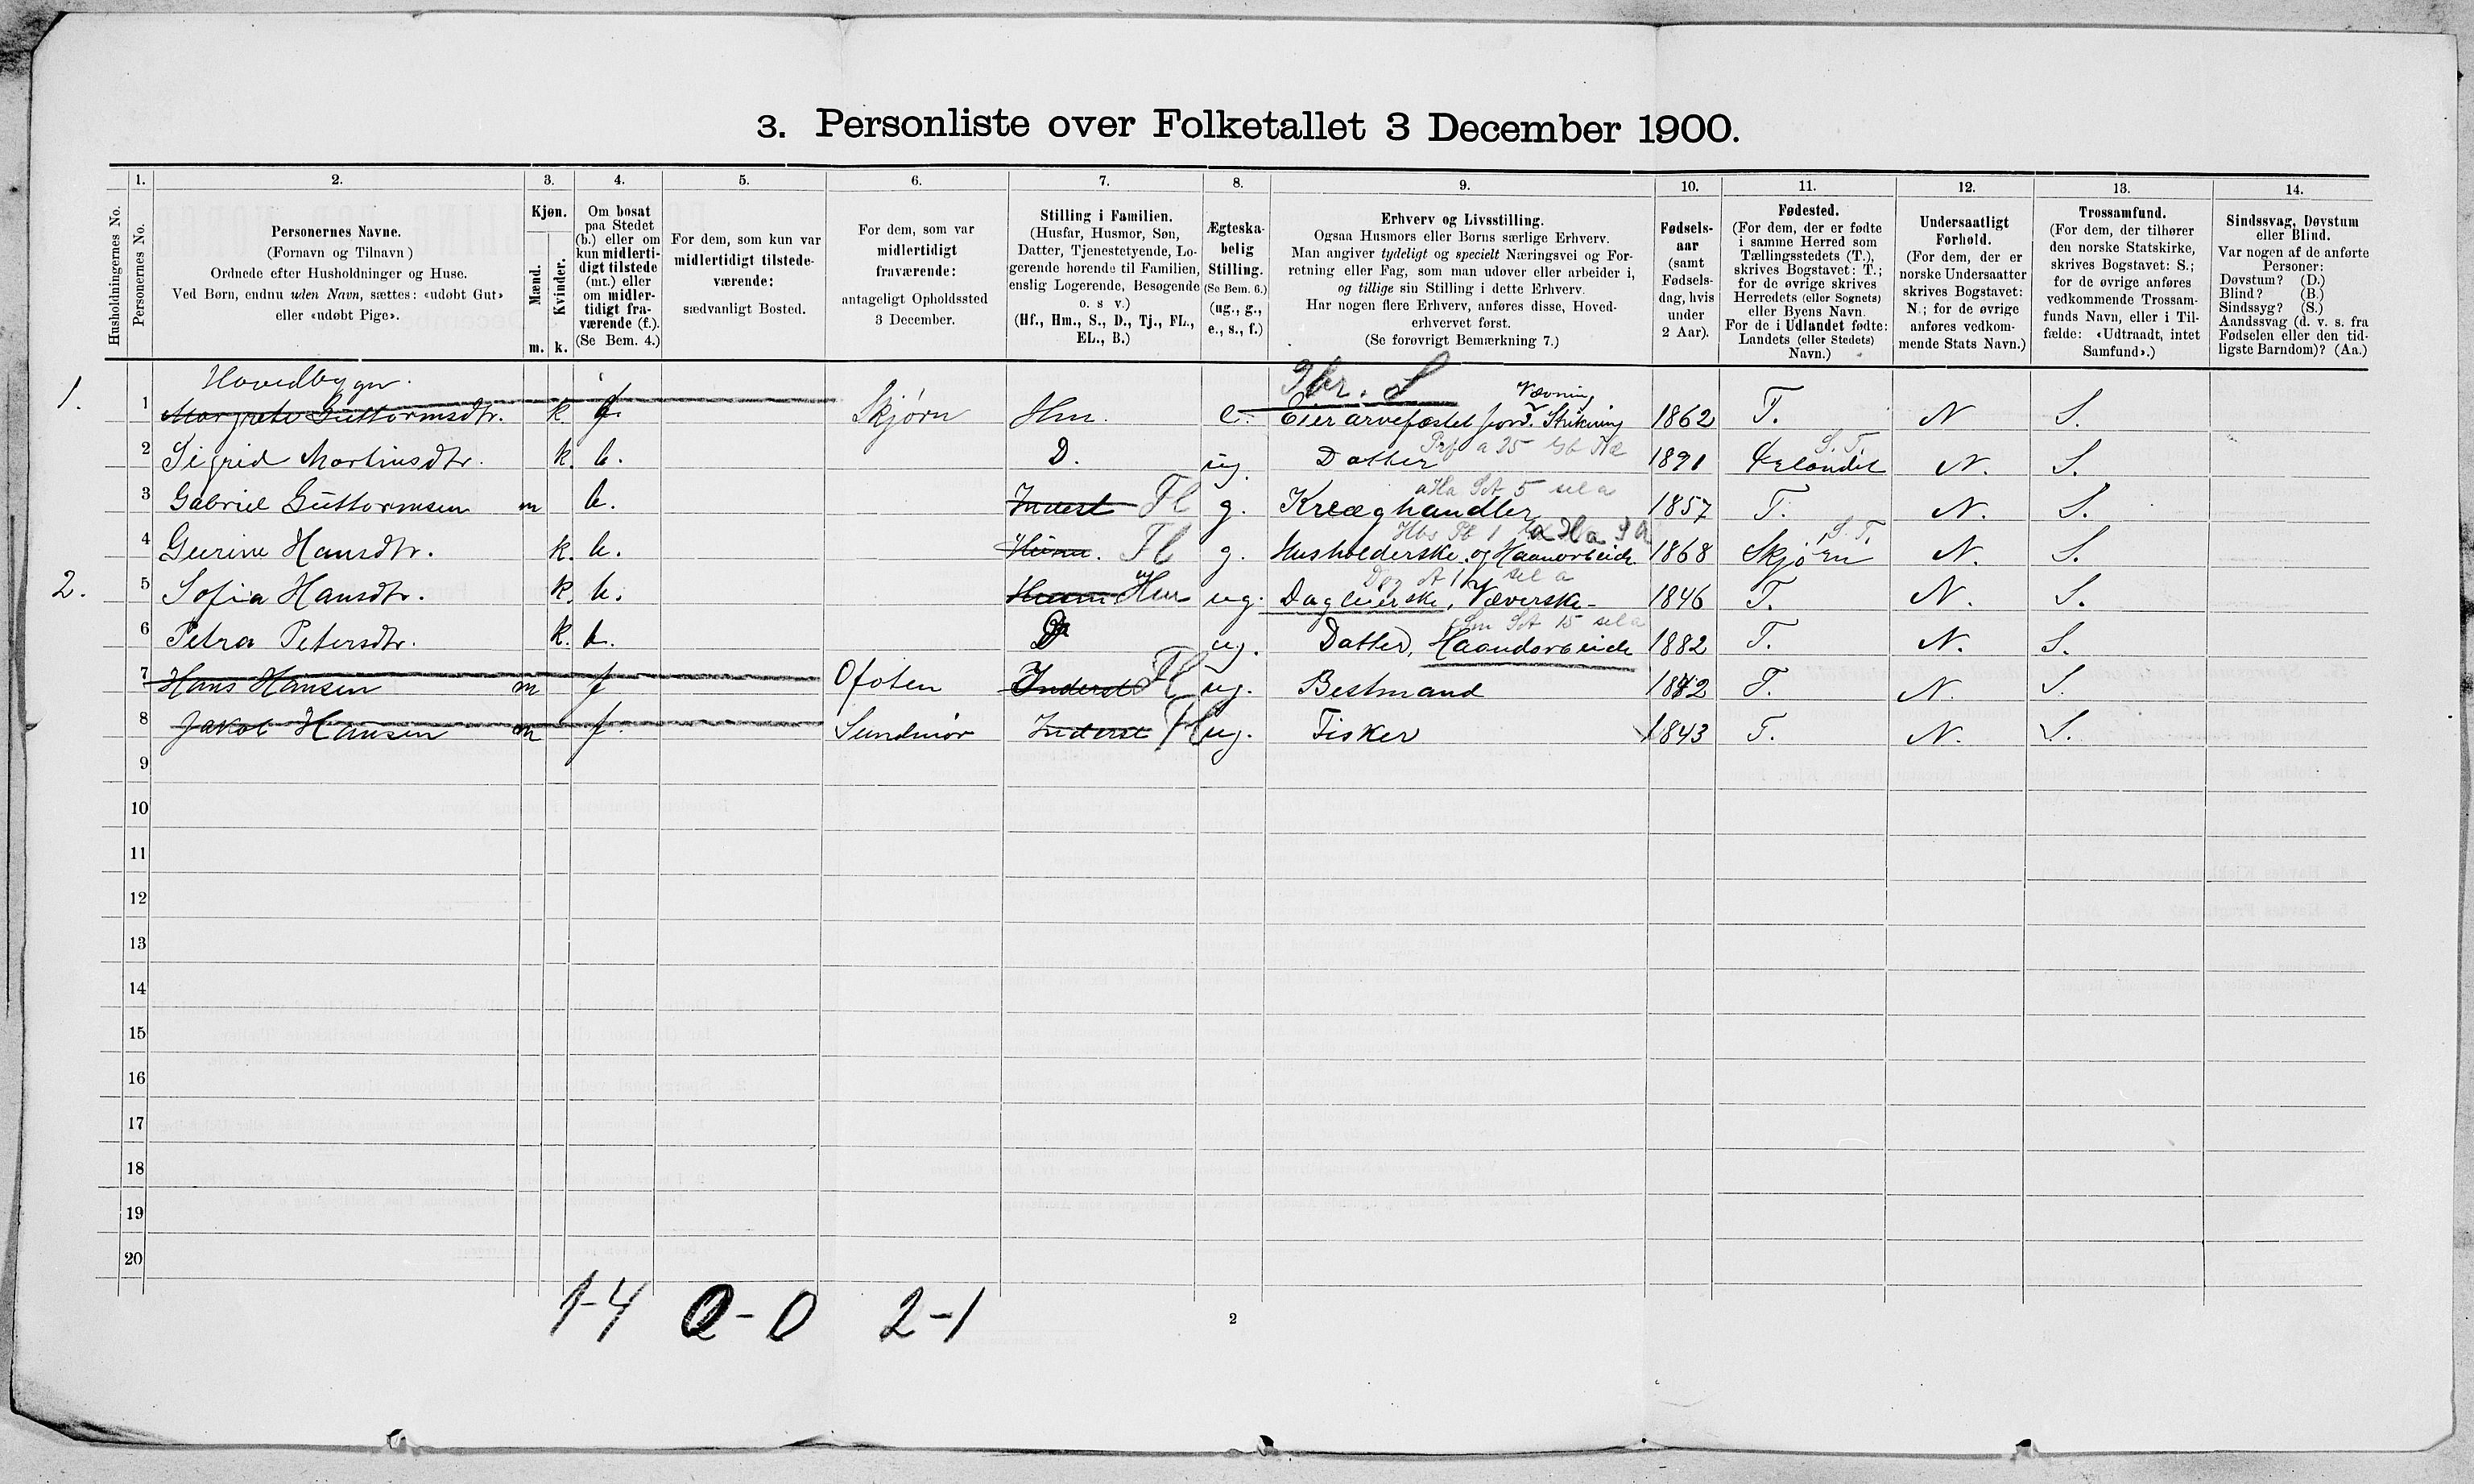 3. Personliste over Folketallet 3 December 1900.
1. 2. 3. 4. 5. 6. 7. 8. 9. 10. 11. 12. 13. 14.
Husholdningernes No.
Personernes No.
Personernes Navne.
(Fornavn og Tilnavn)
Ordnede efter Husholdninger og Huse.
Ved Børn, endnu uden Navn, sættes: «udøbt Gut»
eller «udøbt Pige».
Kjøn.
Mænd.
Kvinder.
m. k.
Om bosat
paa Stedet
(b.) eller om
kun midlerti-
digt tilstede
(mt.) eller
om midler-
tidigt fra-
værende (f.).
(Se Bem. 4.)
For dem, som kun var
midlertidigt tilstede-
værende:
sædvanligt Bosted.
For dem, som var
midlertidigt
fraværende:
antageligt Opholdssted
3 December.
Stilling i Familien.
(Husfar, Husmor, Søn,
Datter, Tjenestetyende, Lo-
gerende hørende til Familien,
enslig Logerende, Besøgende
o. s v.)
(Hf., Hm., S., D., Tj., FL.,
EL., B.)
Ægteska-
belig
Stilling.
(Se Bem. 6.)
(ug., g.,
e., s., f.)
Erhverv og Livsstilling.
Ogsaa Husmors eller Børns særlige Erhverv.
Man angiver tydeligt og specielt Næringsvei og For-
retning eller Fag, som man udøver eller arbeider i,
og tillige sin Stilling i dette Erhverv.
Har nogen flere Erhverv, anføres disse, Hoved-
erhvervet først.
(Se forøvrigt Bemærkning 7.)
Fødsels-
aar
(samt
Fødsels-
dag, hvis
under
2 Aar).
Fødested.
(For dem, der er fødte
i samme Herred som
Tællingsstedets (T.),
skrives Bogstavet: T.;
for de øvrige skrives
Herredets (eller Sognets)
eller Byens Navn.
For de i Udlandet fødte:
Landets (eller Stedets)
Navn.)
Undersaatligt
Forhold.
(For dem, der er
norske Undersaatter
skrives Bogstavet:
N.; for de øvrige
anføres vedkom-
mende Stats Navn.)
Trossamfund.
(For dem, der tilhører
den norske Statskirke,
skrives Bogstavet: S.;
for de øvrige anføres
vedkommende Trossam-
funds Navn, eller i Til-
fælde: «Udtraadt, intet
Samfund».)
Sindssvag, Døvstum
eller Blind.
Var nogen af de anførte
Personer:
Døvstum? (D.)
Blind? (B.)
Sindssyg? (S.)
Aandssvag (d. v. s. fra
Fødselen eller den tid-
ligste Barndom)? (Aa.)
Hovedbygn.
1. 1 Margrete Guttormsdtr. k. f. Skjørn Hm. e. Eier arvefæstet jord. Strikning Vævning 1862 T. N S.
2 Sigrid Martinsdtr. k. b. D. ug. Datter 1891 S. T. N. S.
3 Gabriel Guttormsen m b. Inderst Fl g. Kræghandler 1857 T. N. S.
4 Gurine Hansdtr. k. b. Fl g. Husholderske og Haanarbeide 1868 Skjørn S. T. N. S.
2. 5 Sofia Hansdtr. k. b. Hm ug. Dagleierske, Væverske 1846 T. N. S.
6 Petra Petersdtr. k. b. D ug. Datter, Haandarbeide 1882 T. N. S.
7 Hans Hansen m f Ofoten Inderst Fl ug. Bestmand 1872 T. N. S.
8 Jakob Hansen m f. Sundmør Inderst Fl ug. Fisker 1843 T. N. S.
9
10
11
12
13
14
15
16
17
18
19
20
1-4 0-0 2-1
2